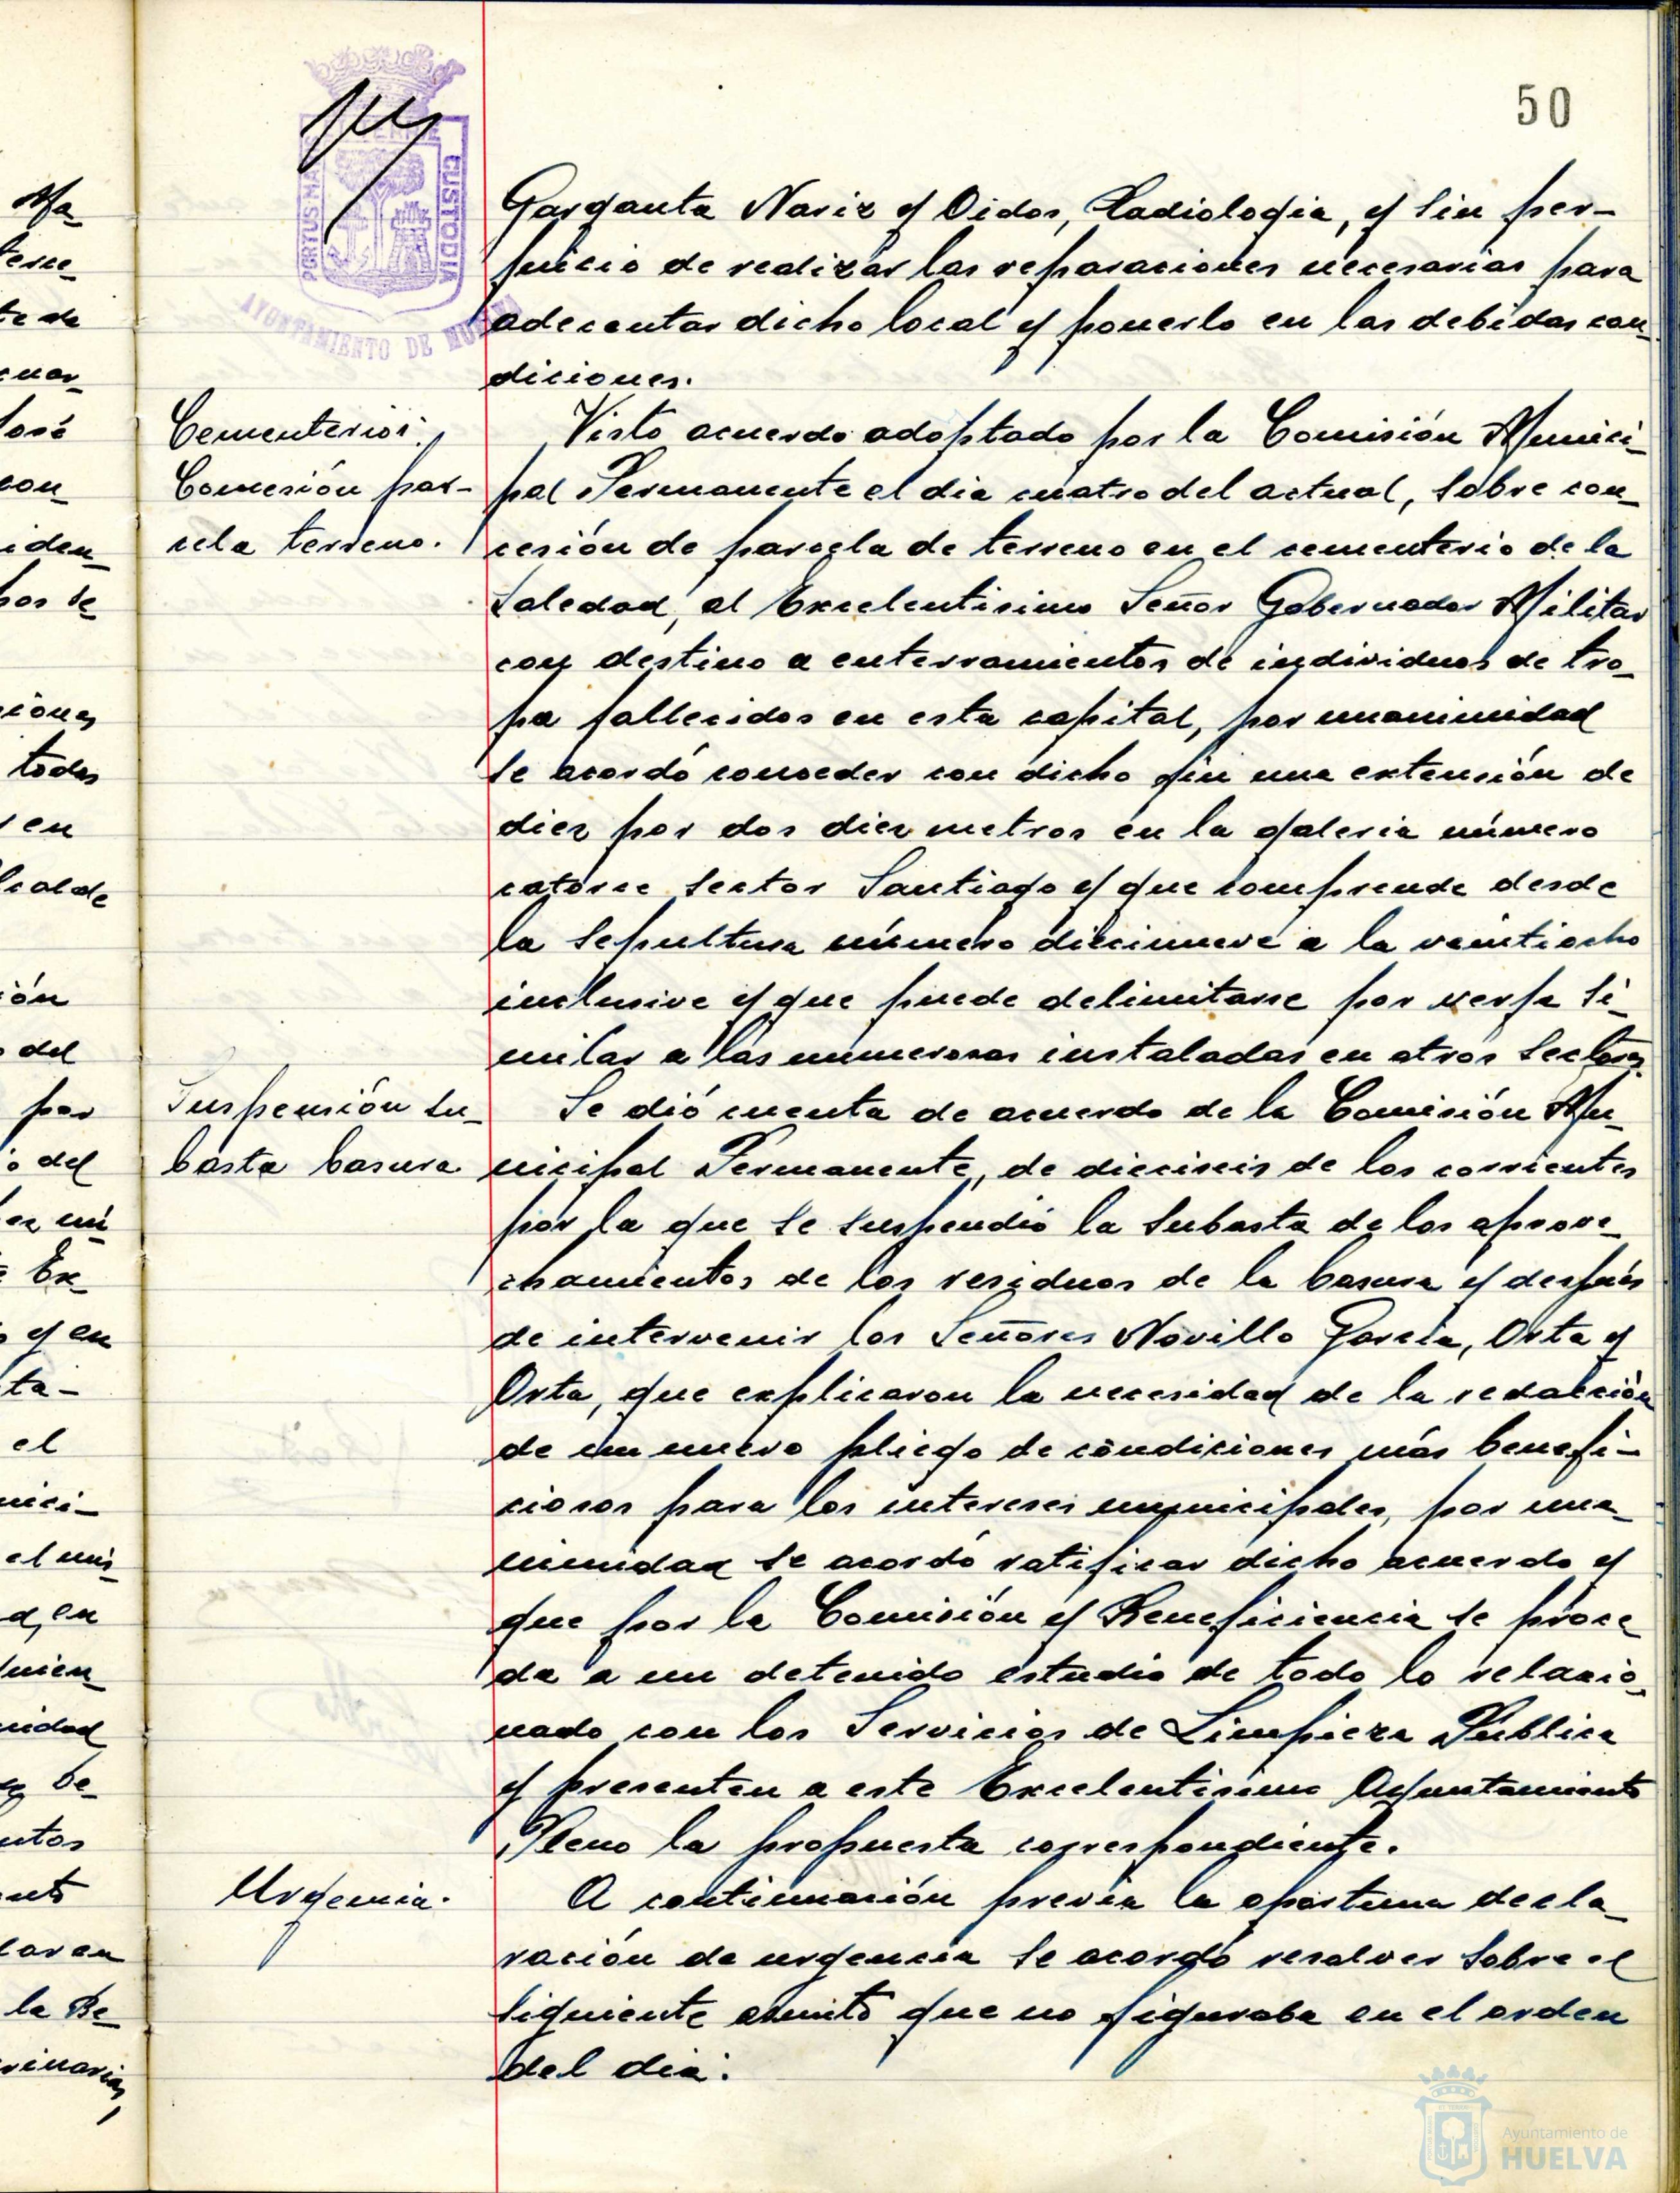 50
PORTUS MARIS ET TERRAE CUSTODIA
AYUNTAMIENTO DE HUELVA
Garganta Nariz y Oidos, Radiologia, y sin per-
juicio de realizar las reparaciones necesarias para
adecentar dicho local y ponerlo en las debidas con_
diciones.
Cementerios:
Concesión par-
cela terreno.
Visto acuerdo adoptado por la Comisión Munici_
pal Permanente el dia cuatro del actual, sobre con_
cesión de parcela de terreno en el cementerio de la
Soledad, al Excelentisimo Señor Gobernador Militar
con destino a enterramientos de individuos de tro_
pa fallecidos en esta capital, por unanimidad
se acordó conceder con dicho fin una extensión de
diez por dos diez metros en la galeria número
catorce sector Santiago y que comprende desde
la sepultura número diecinueve a la veintiocho
inclusive y que puede delimitarse por verja si_
milar a las numerosas instaladas en otros sectores.
Suspensión su_
basta basura
Se dió cuenta de acuerdo de la Comisión Mu_
nicipal Permanente, de dieciseis de los corrientes
por la que se suspendió la subasta de los aprove_
chamientos de los residuos de la basura y después
de intervenir los Señores Novillo García, Orta y
Orta, que explicaron la necesidad de la redacción
de un nuevo pliego de condiciones más benefi-
ciosos para los intereses municipales, por una_
nimidad se acordó ratificar dicho acuerdo y
que por la Comisión y Beneficiencia se proce_
da a un detenido estudio de todo lo relacio_
nado con los Servicios de Limpieza Publica
y presenten a este Excelentisimo Ayuntamiento
Pleno la propuesta correspondiente.
Urgencia.
A continuación previa la oportuna decla_
ración de urgencia se acordó resolver sobre el
siguiente asunto que no figuraba en el orden
del dia:
Ayuntamiento de
HUELVA